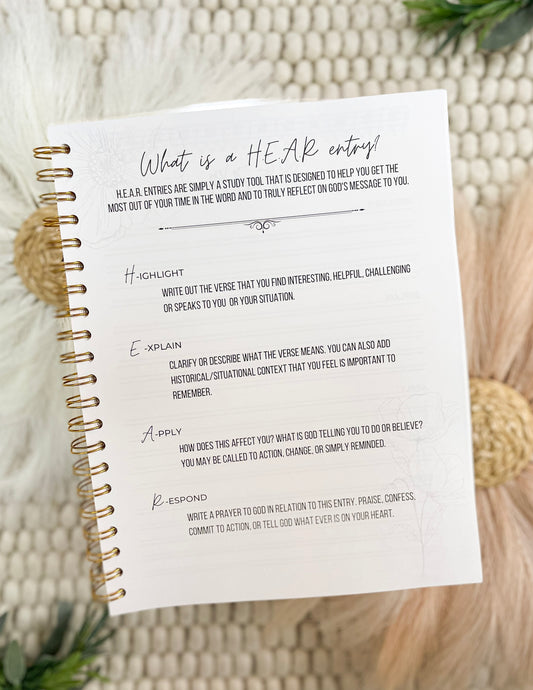 What is a H.E.A.R entry?
H.E.A.R. ENTRIES ARE SIMPLY A STUDY TOOL THAT IS DESIGNED TO HELP YOU GET THE
MOST OUT OF YOUR TIME IN THE WORD AND TO TRULY REFLECT ON GOD'S MESSAGE TO YOU.
H-IGHLIGHT
WRITE OUT THE VERSE THAT YOU FIND INTERESTING, HELPFUL, CHALLENGING
OR SPEAKS TO YOU OR YOUR SITUATION.
E-XPLAIN
CLARIFY OR DESCRIBE WHAT THE VERSE MEANS. YOU CAN ALSO ADD
HISTORICAL/SITUATIONAL CONTEXT THAT YOU FEEL IS IMPORTANT TO
REMEMBER.
A-PPLY
HOW DOES THIS AFFECT YOU? WHAT IS GOD TELLING YOU TO DO OR BELIEVE?
YOU MAY BE CALLED TO ACTION, CHANGE, OR SIMPLY REMINDED.
R-ESPOND
WRITE A PRAYER TO GOD IN RELATION TO THIS ENTRY. PRAISE, CONFESS,
COMMIT TO ACTION, OR TELL GOD WHAT EVER IS ON YOUR HEART.